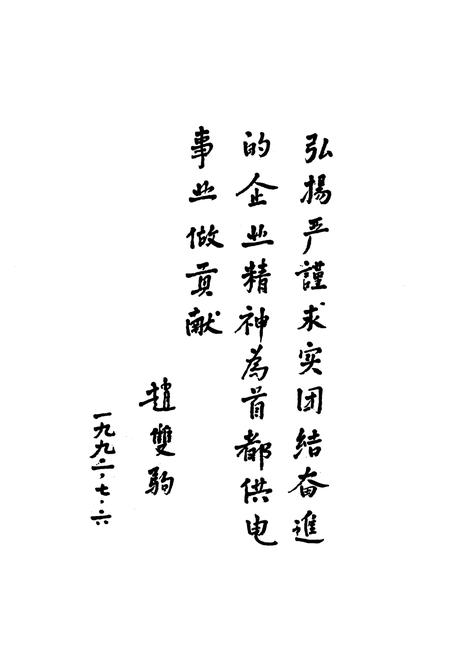 弘揚严謹求实团结奋進
的企业精神為首都供电
事业做貢献
趙雙驹
一九九二,七.六